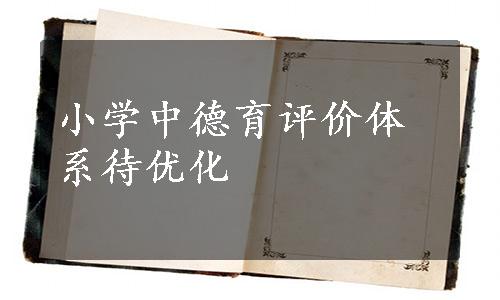 小学中德育评价体
系待优化